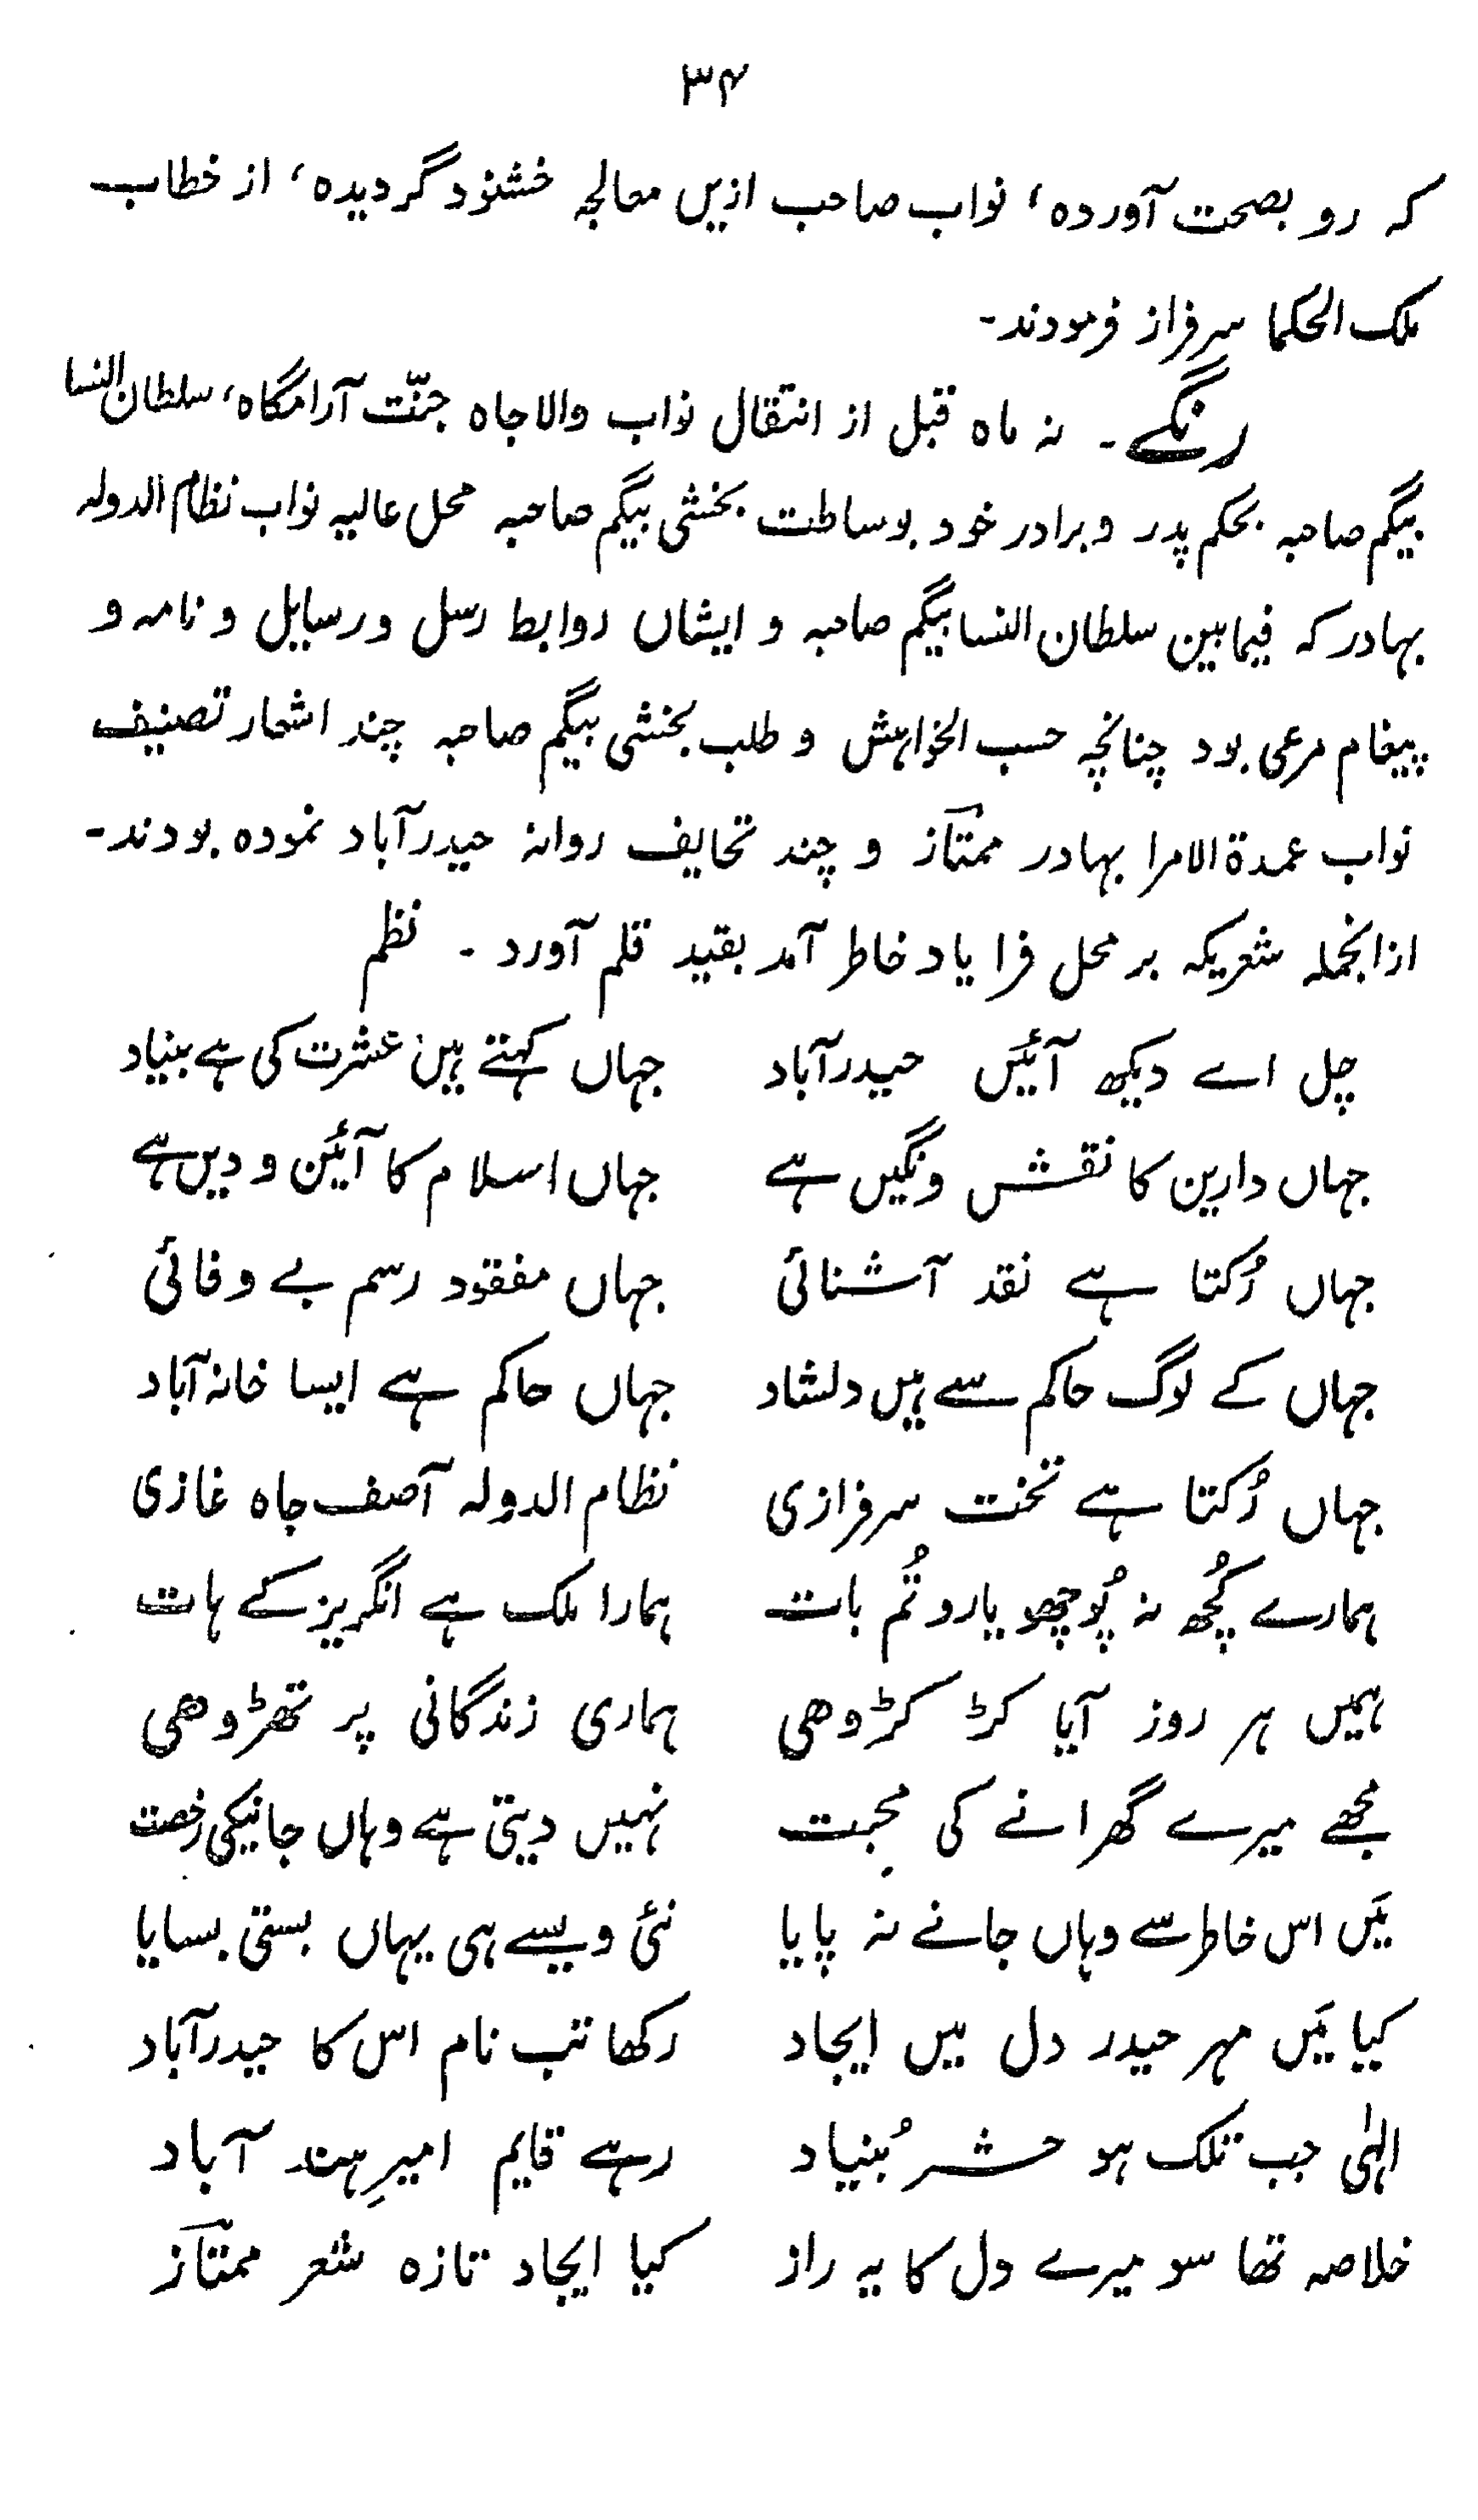 ۳۴
کہ رو بصحت آوردہ، نواب صاحب ازیں معالجہ خشنود گردیدہ، از خطاب
ملک الحکما سرفراز فرمودند۔
رنگے۔ نہ ماہ قبل از انتقال نواب والا جاہ جنّت آرامگاہ، سلطان النسا
بیگم صاحبہ بحکم پدر و برادر خود بوساطت بخشی بیگم صاحبہ محل عالیہ نواب نظام الدولہ
بہادر کہ فیما بین سلطان النسا بیگم صاحبہ و ایشاں روابط رسل و رسایل و نامہ و
پیغام مرعی بود چنانچہ حسب الخواہش و طلب بخشی بیگم صاحبہ چند اشعار تصنیف
نواب عمدۃ الامرا بہادر ممتاز و چند تحایف روانہ حیدرآباد نمودہ بودند۔
ازانجملہ شعریکہ بر محل فرا یاد خاطر آمد بقید قلم آورد ۔ نظم
چل اے دیکھ آئیں حیدرآباد جہاں کہتے ہیں عشرت کی ہے بنیاد
جہاں دارین کا نقش ونگیں ہے جہاں اسلام کا آئین و دیں ہے
جہاں رُکتا ہے نقد آشنائی جہاں مفقود رسم بے وفائی
جہاں کے لوگ حاکم سے ہیں دلشاد جہاں حاکم ہے ایسا خانہ آباد
جہاں رُکتا ہے تخت سرفرازی نظام الدولہ آصف جاہ غازی
ہمارے کُچھ نہ پُوچھو یارو تُم بات ہمارا ملک ہے انگریز کے ہات
ہمیں ہر روز آیا کڑ کڑوھی ہماری زندگانی پر تھڑوھی
مجھے میرے گھرانے کی محبت نہیں دیتی ہے وہاں جانیکی رخصت
مَیں اس خاطر سے وہاں جانے نہ پایا نئی ویسے ہی یہاں بستی بسایا
کیا مَیں مہر حیدر دل میں ایجاد رکھا تب نام اس کا حیدرآباد
الہٰی جب تلک ہو حشر بُنیاد رہے قایم امیرِ ہند آباد
خلاصہ تھا سو میرے دل کا یہ راز کیا ایجاد تازہ شعر ممتاز